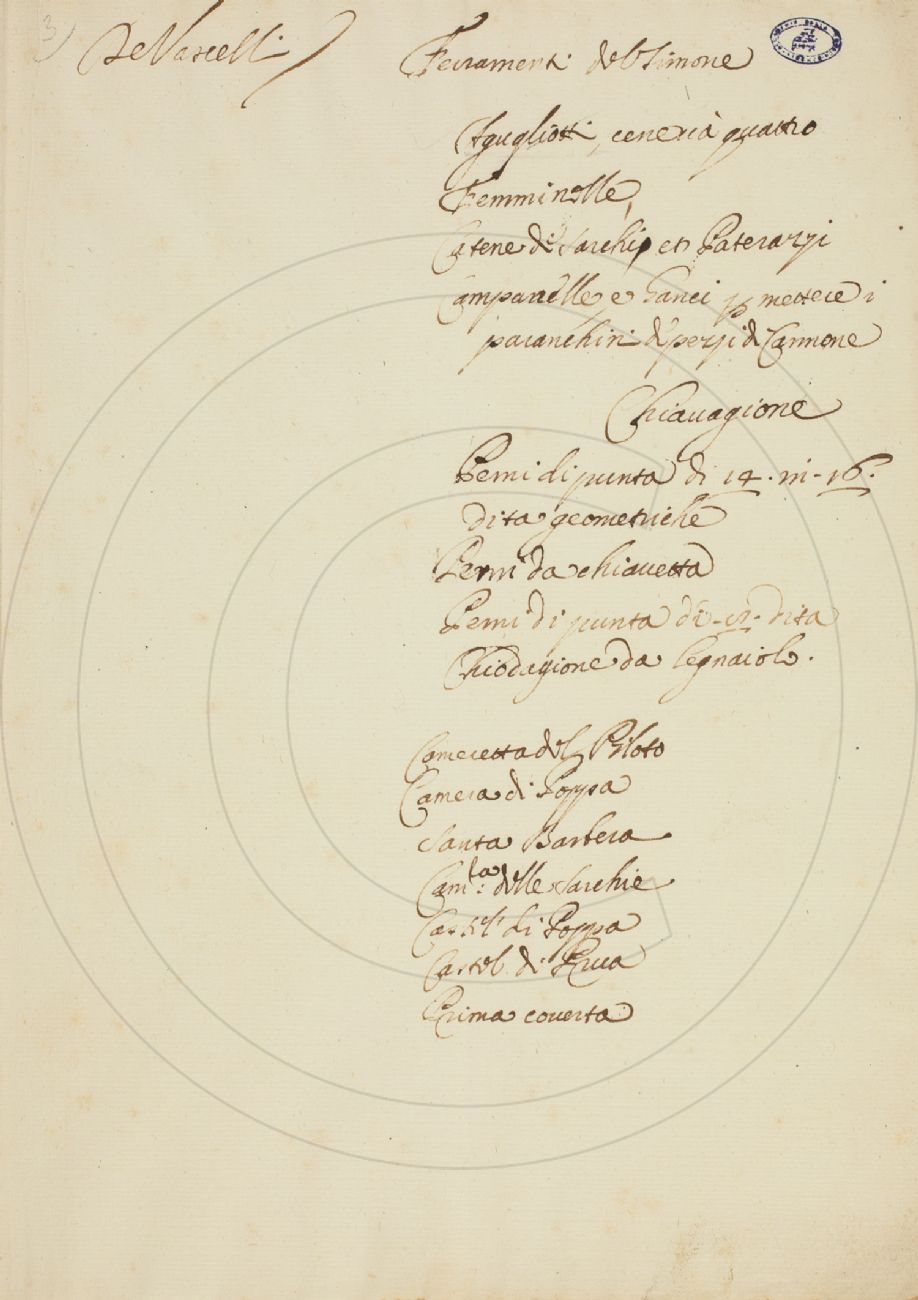 3
De Vascelli
Ferramenti del Timone
Agugliotti, cenerià quattro
Femminelle,
Catene di Sarchip et Paterazzi
Campanelle, e Ganci p mettere i
paranchini di pezzi di Cannone
Chiavagione
Perni di punta di 14. in. 16.
dita geometriche
Perni da chiavetta
Perni di punta di 12. dita
Chiodagione da legnaiolo.
Cameretta del Piloto
Camera di Poppa
Santa Barbera
Cam:ta delle Sarchie
Castel di Poppa
Castel di Prua
Prima coverta